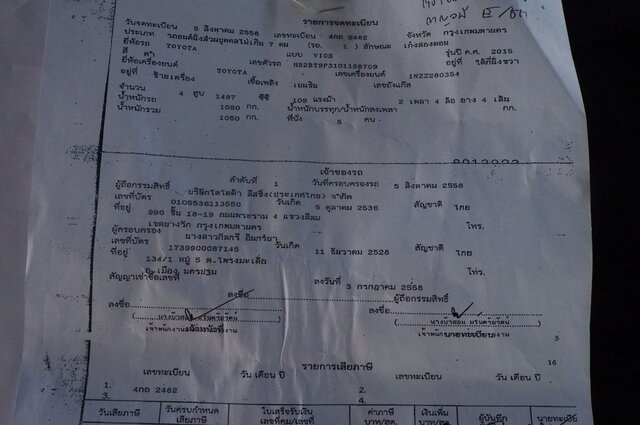 รายการจดทะเบียน
วันจดทะเบียน 5 สิงหาคม 2558 เลขทะเบียน 4กถ 2482 จังหวัด กรุงเทพมหานคร
ประเภท รถยนต์นั่งส่วนบุคคลไม่เกิน 7 คน (รย. 1) ลักษณะ เก๋งสองตอน
ยี่ห้อรถ TOYOTA แบบ VIOS รุ่นปี ค.ศ. 2015
สี ดำ เลขตัวรถ อยู่ที่
ยี่ห้อเครื่องยนต์ TOYOTA เลขเครื่องยนต์ 1NZZ280354
อยู่ที่ ซ้ายเครื่อง เชื้อเพลิง เบนซิน เลขถังแก๊ส
จำนวน 4 สูบ 1497 ซีซี 109 แรงม้า 2 เพลา 4 ล้อ ยาง 4 เส้น
น้ำหนักรถ 1050 กก. น้ำหนักบรรทุก/น้ำหนักลงเพลา กก.
น้ำหนักรวม 1050 กก. ที่นั่ง 5 คน
เจ้าของรถ
ลำดับที่ 1 วันที่ครอบครองรถ 5 สิงหาคม 2558
ผู้ถือกรรมสิทธิ์ บริษัทโตโยต้า ลีสซิ่ง(ประเทศไทย) จำกัด
เลขที่บัตร 0105536113550 วันเกิด 5 ตุลาคม 2536 สัญชาติ ไทย
ที่อยู่ 990 ชั้น 18-19 ถนนพระราม 4 แขวงสีลม
เขตบางรัก กรุงเทพมหานคร โทร.
ผู้ครอบครอง
เลขที่บัตร 1739900087145 วันเกิด 11 ธันวาคม 2528 สัญชาติ ไทย
ที่อยู่ 134/1 หมู่ 5 ต.โพรงมะเดื่อ
อ.เมือง นครปฐม โทร.
สัญญาเช่าซื้อเลขที่ ลงวันที่ 3 กรกฎาคม 2558
ลงชื่อ ผู้ถือกรรมสิทธิ์
ลงชื่อ ลงชื่อ
เจ้าพนักงาน
5
16
รายการเสียภาษี
เลขทะเบียน วัน เดือน ปี เลขทะเบียน วัน เดือน ปี
1. 4กถ 2482 2.
3. 4.
วันเสียภาษี วันครบกำหนด ใบเสร็จรับเงิน ค่าภาษี เงินเพิ่ม ผู้บันทึก นายทะเบียน
เสียภาษี เล่มที่/เลขที่ บาท/สต. บาท/สต.